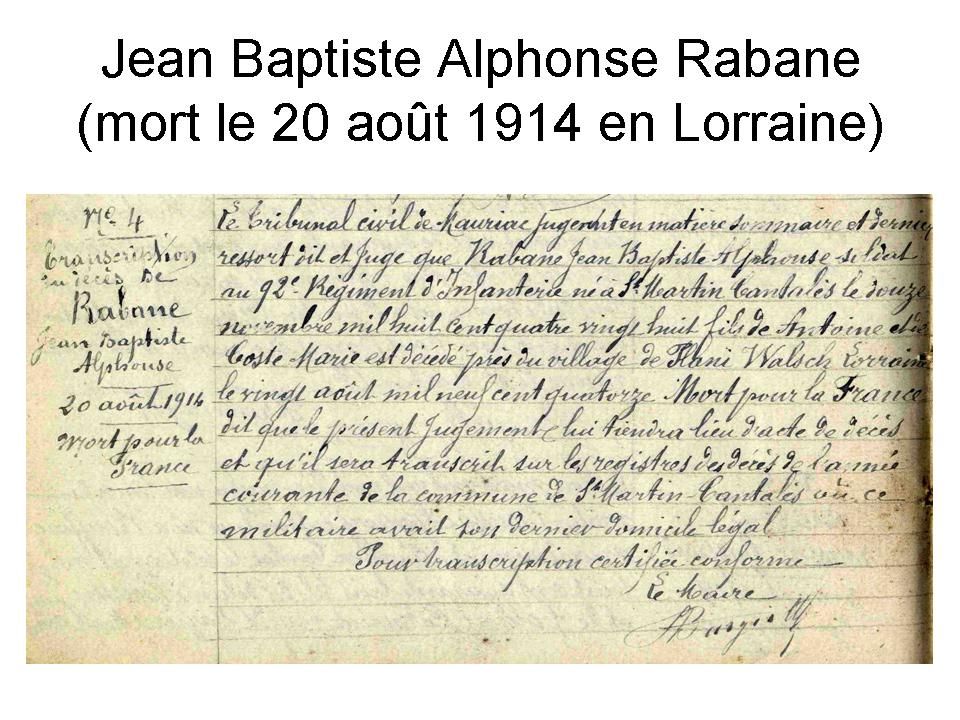 Jean Baptiste Alphonse Rabane
(mort le 20 août 1914 en Lorraine)
No 4
Transcription
du décès de
Rabane
Jean Baptiste
Alphonse
20 août 1914
Mort pour la
France
Le Tribunal civil de Mauriac jugeant en matière sommaire et dernier
ressort dit et juge que Rabane Jean Baptiste Alphonse soldat
au 92e Régiment d'Infanterie né à St Martin Cantalès le douze
novembre mil huit cent quatre vingt huit fils de Antoine et de
Coste Marie est décédé près du village de Hani Walsch Lorraine
le vingt août mil neuf cent quatorze Mort pour la France
dit que le présent Jugement lui tiendra lieu d'acte de décès
et qu'il sera transcrit sur les registres des décès de l'année
courante de la commune de St Martin-Cantalès où ce
militaire avait son dernier domicile légal
Pour transcription certifiée conforme
Le Maire